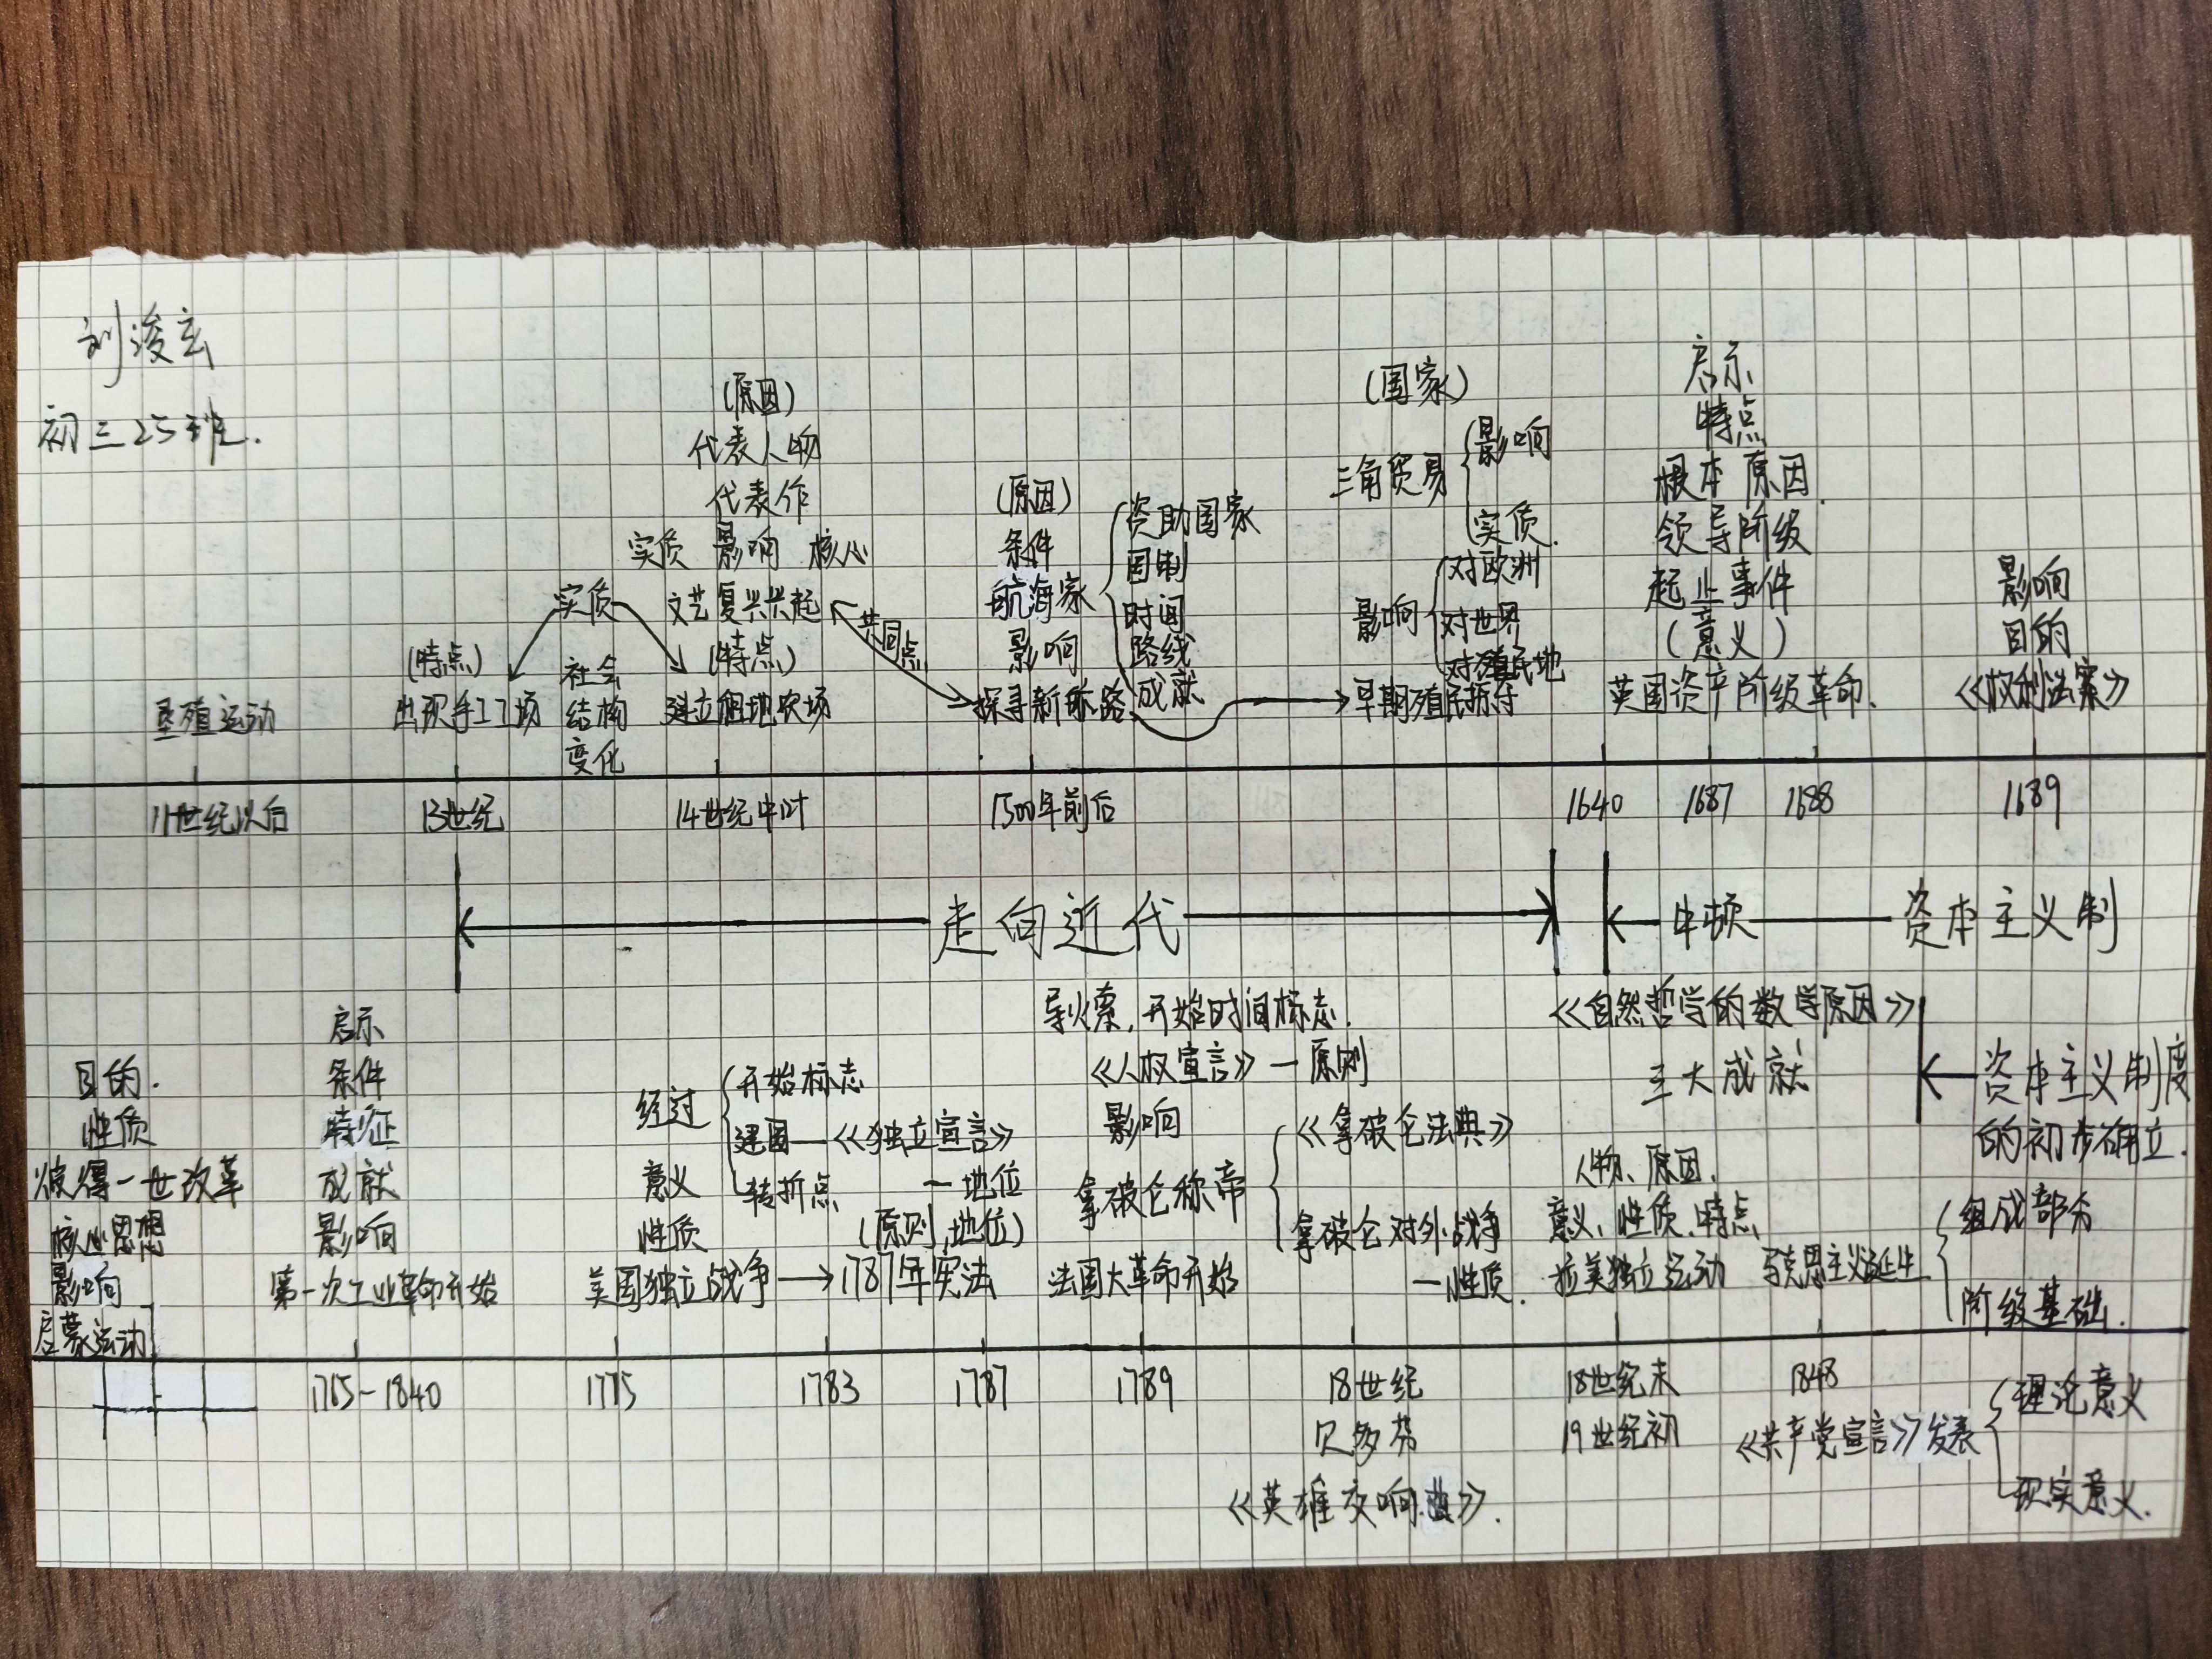 刘浚玄
初三25班.
(原因)
代表人物
代表作
实质 影响 核心
文艺复兴兴起
实质
(特点)
出现手工工场
垦殖运动
社会
结构
变化
(特点)
建立租地农场
共同点
(原因)
条件
航海家
影响
探寻新航路
资助国家
国制
时间
路线
成就
(国家)
三角贸易
影响
实质.
影响
对欧洲
对世界
对殖民地
早期殖民掠夺
启示
特点
根本原因.
领导阶级
起止事件
(意义)
英国资产阶级革命.
影响
目的
《权利法案》
11世纪以后 13世纪 14世纪中叶 1500年前后 1640 1687 1688 1689
走向近代
牛顿
资本主义制
《自然哲学的数学原因》
三大成就
资本主义制度
的初步确立.
目的.
性质
彼得一世改革
核心思想
影响
启蒙运动
启示
条件
特征
成就
影响
第一次工业革命开始
经过
开始标志
建国—《独立宣言》
转折点 —地位
意义
性质
(原则,地位)
美国独立战争→1787年宪法
导火索,开始时间标志.
《人权宣言》—原则
影响
拿破仑称帝
法国大革命开始
《拿破仑法典》
拿破仑对外战争
—性质.
人物、原因.
意义、性质、特点
拉美独立运动
马克思主义诞生
组成部分
阶级基础.
1765-1840 1775 1783 1787 1789 18世纪 18世纪末 1848
贝多芬
《英雄交响曲》.
19世纪初
《共产党宣言》发表
理论意义
现实意义.